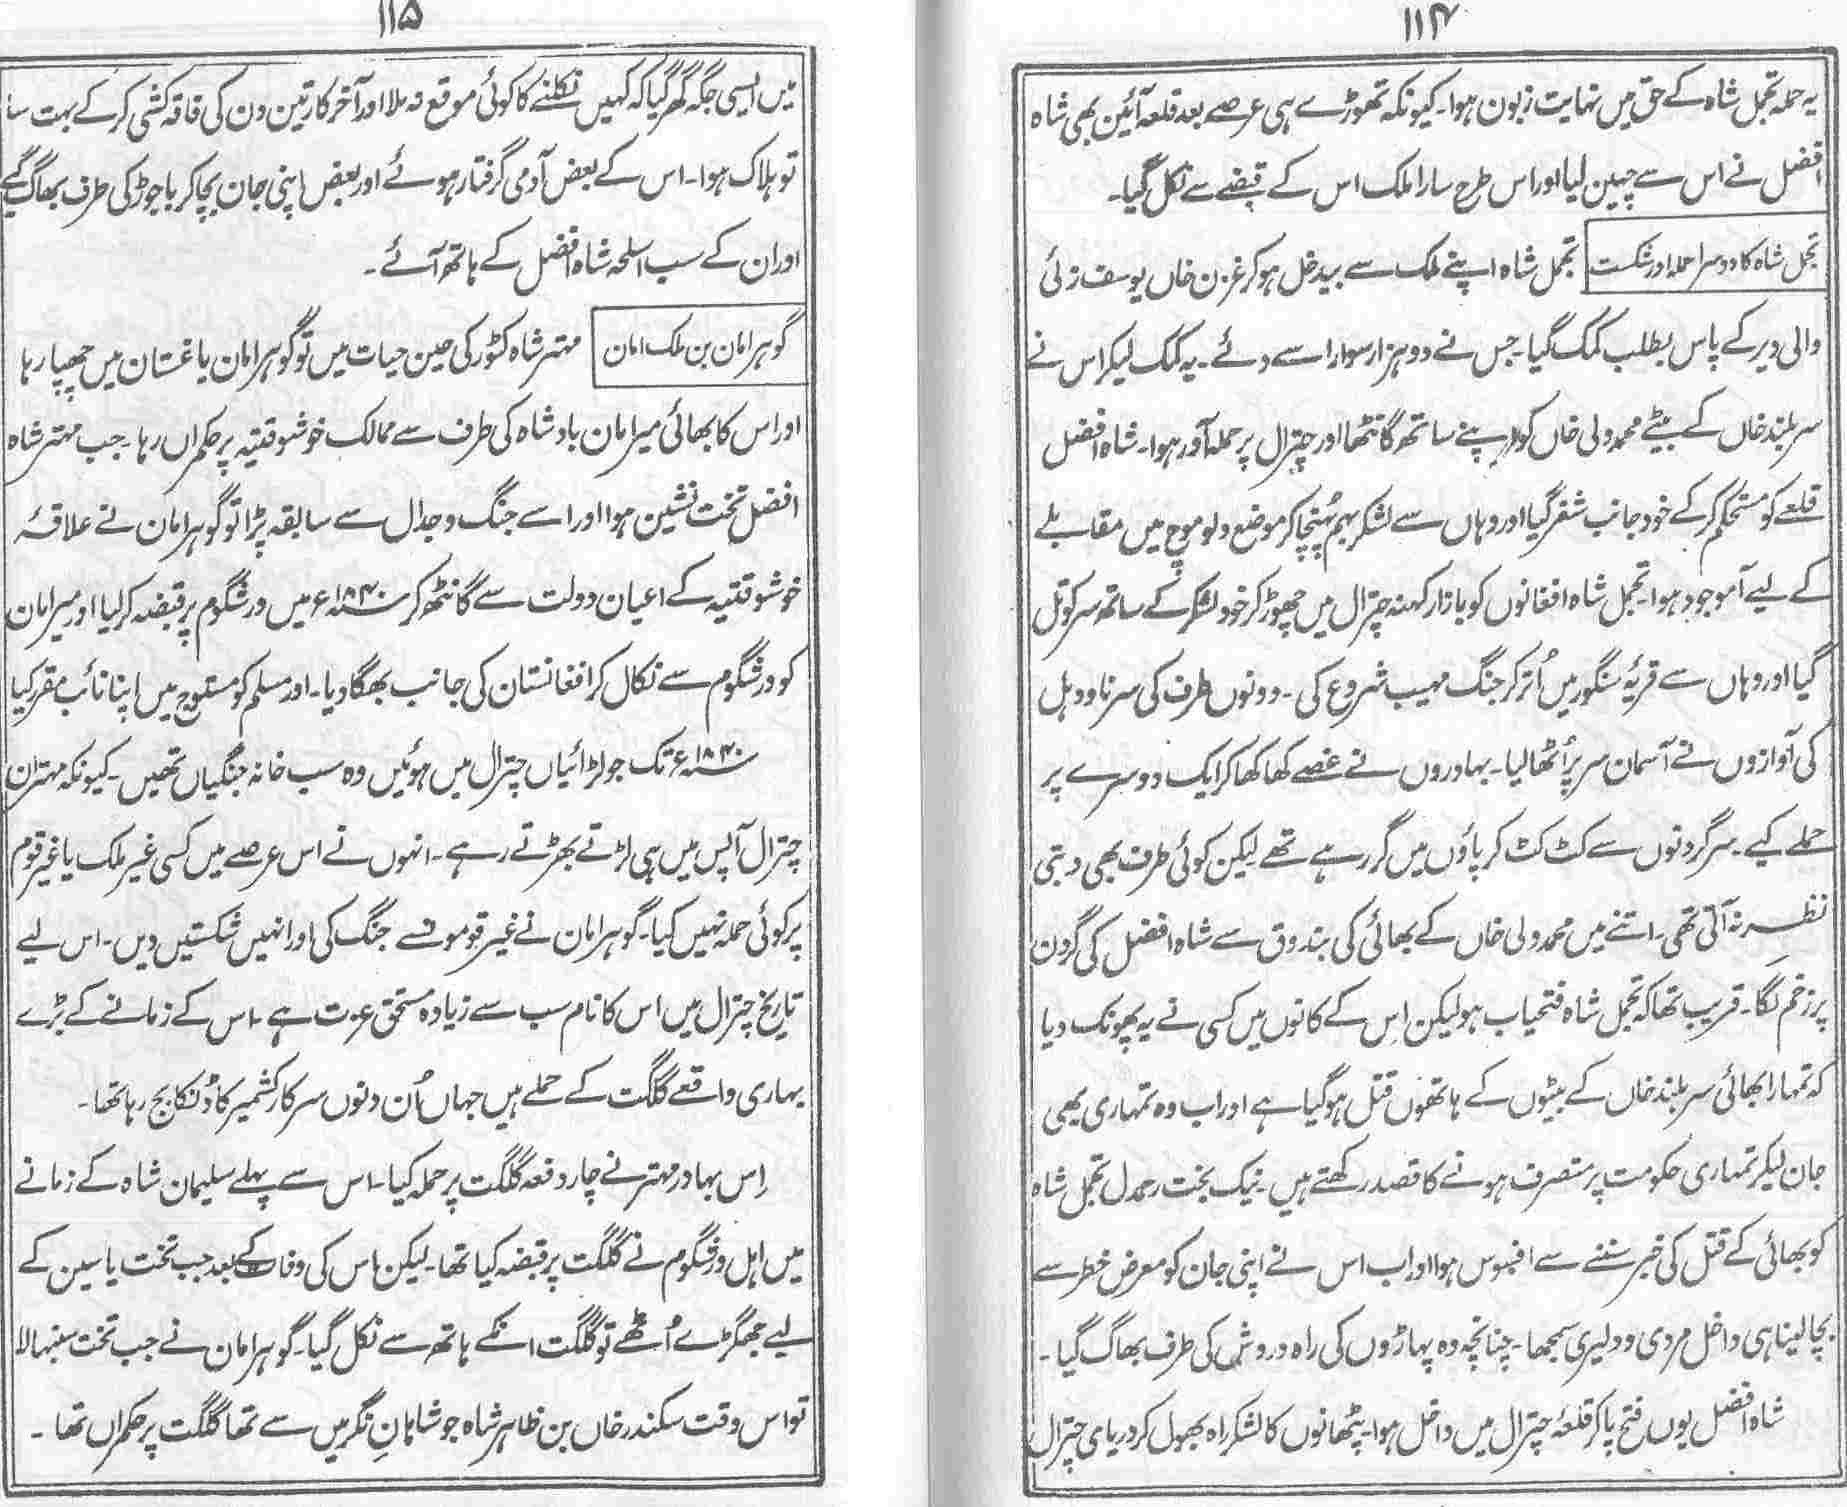 ۱۱۴
یہ حملہ تجمل شاہ کے حق میں نہایت زبون ہوا۔ کیونکہ تھوڑے ہی عرصے بعد قلعہ آئین بھی شاہ
افضل نے اس سے چھین لیا اور اس طرح سارا ملک اس کے قبضے سے نکل گیا۔
تجمل شاہ کا دوسرا حملہ اور شکست تجمل شاہ اپنے ملک سے بیدخل ہو کر غزن خاں یوسف زئی
والی دیر کے پاس بطلب کمک گیا۔ جس نے دو ہزار سوار اسے دئے۔ یہ کمک لیکر اس نے
سربلند خاں کے بیٹے محمد ولی خاں کو اپنے ساتھ گانٹھا اور چترال پر حملہ آور ہوا۔ شاہ افضل
قلعے کو مستحکم کر کے خود جانب شغر گیا اور وہاں سے لشکر بہم پہنچا کر موضع دلوموچ میں مقابلے
کے لیے آموجود ہوا۔ تجمل شاہ افغانوں کو بازار کہنہ چترال میں چھوڑ کر خود لشکر کے ساتھ سر کوتل
گیا اور وہاں سے قریۂ سنگور میں اُتر کر جنگ مہیب شروع کی۔ دونوں طرف کی سرنا و دہل
کی آوازوں نے آسمان سر پر اُٹھا لیا۔ بہادروں نے غصے کھا کھا کر ایک دوسرے پر
حملے کیے۔ سر گردنوں سے کٹ کٹ کر پاؤں میں گر رہے تھے لیکن کوئی طرف بھی دبتی
نظر نہ آتی تھی۔ اتنے میں محمد ولی خاں کے بھائی کی بندوق سے شاہ افضل کی گردن
پر زخم لگا۔ قریب تھا کہ تجمل شاہ فتحیاب ہو لیکن اس کے کانوں میں کسی نے یہ پھونک دیا
کہ تمہارا بھائی سربلند خاں کے بیٹوں کے ہاتھوں قتل ہو گیا ہے اور اب وہ تمہاری بھی
جان لیکر تمہاری حکومت پر متصرف ہونے کا قصد رکھتے ہیں۔ نیک بخت رحمدل تجمل شاہ
کو بھائی کے قتل کی خبر سننے سے افسوس ہوا اور اب اس نے اپنی جان کو معرض خطر سے
بچا لینا ہی داخل مردی و دلیری سمجھا۔ چنانچہ وہ پہاڑوں کی راہ دروش کی طرف بھاگ گیا۔
شاہ افضل یوں فتح پا کر قلعۂ چترال میں داخل ہوا۔ پٹھانوں کا لشکر راہ بھول کر دریای چترال
۱۱۵
میں ایسی جگہ گھر گیا کہ کہیں نکلنے کا کوئی موقع نہ ملا اور آخر کار تین دن کی فاقہ کشی کر کے بہت سا
تو ہلاک ہوا۔ اس کے بعض آدمی گرفتار ہوئے اور بعض اپنی جان بچا کر باجوڑ کی طرف بھاگ گئے
اور ان کے سب اسلحہ شاہ افضل کے ہاتھ آئے۔
گوہر امان بن ملک امان مہتر شاہ کٹور کی حین حیات میں تو گوہر امان یاغستان میں چھپا رہا
اور اس کا بھائی میر امان بادشاہ کی طرف سے ممالک خوشوقتیہ پر حکمراں رہا۔ جب مہتر شاہ
افضل تخت نشین ہوا اور اسے جنگ و جدال سے سابقہ پڑا تو گوہر امان نے علاقۂ
خوشوقتیہ کے اعیان دولت سے گانٹھ کر ۱۸۴۰ء میں ورشگوم پر قبضہ کر لیا اور میر امان
کو ورشگوم سے نکال کر افغانستان کی جانب بھگا دیا۔ اور مسلم کو مستوج میں اپنا نائب مقرر کیا
۱۸۴۰ء تک جو لڑائیاں چترال میں ہوئیں وہ سب خانہ جنگیاں تھیں۔ کیونکہ مہتران
چترال آپس میں ہی لڑتے بھڑتے رہے۔ انہوں نے اس عرصے میں کسی غیر ملک یا غیر قوم
پر کوئی حملہ نہیں کیا۔ گوہر امان نے غیر قوموں سے جنگ کی اور انہیں شکستیں دیں۔ اس لیے
تاریخ چترال میں اس کا نام سب سے زیادہ مستحق عزت ہے۔ اس کے زمانے کے بڑے
بہاری واقعے گلگت کے حملے ہیں جہاں اُن دنوں سرکار کشمیر کا ڈنکا بج رہا تھا۔
اِس بہادر مہتر نے چار دفعہ گلگت پر حملہ کیا۔ اس سے پہلے سلیمان شاہ کے زمانے
میں اہل ورشگوم نے گلگت پر قبضہ کیا تھا۔ لیکن اس کی وفات کے بعد جب تخت یاسین کے
لیے جھگڑے اُٹھے تو گلگت انکے ہاتھ سے نکل گیا۔ گوہر امان نے جب تخت سنبھالا
تو اس وقت سکندر خاں بن ظاہر شاہ جو شاہانِ نگر میں سے تھا گلگت پر حکمراں تھا۔